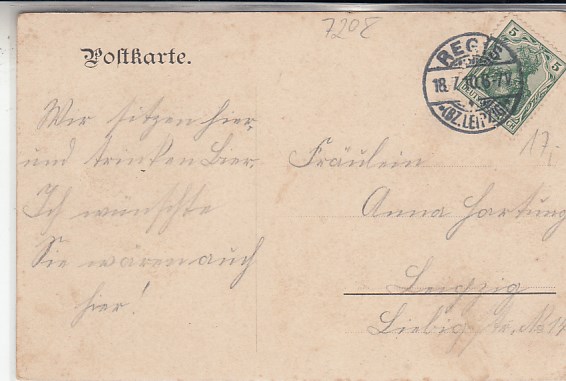 7208
Postkarte.
REGIS
18.7.10.6-7V.
*(BZ.LEIPZIG)
5 5
17,-
Wir sitzen hier
und trinken Bier.
Ich wünschte
Sie wären auch
hier!
Fräulein
Anna Hartung
Leipzig
Liebigstr. No 14